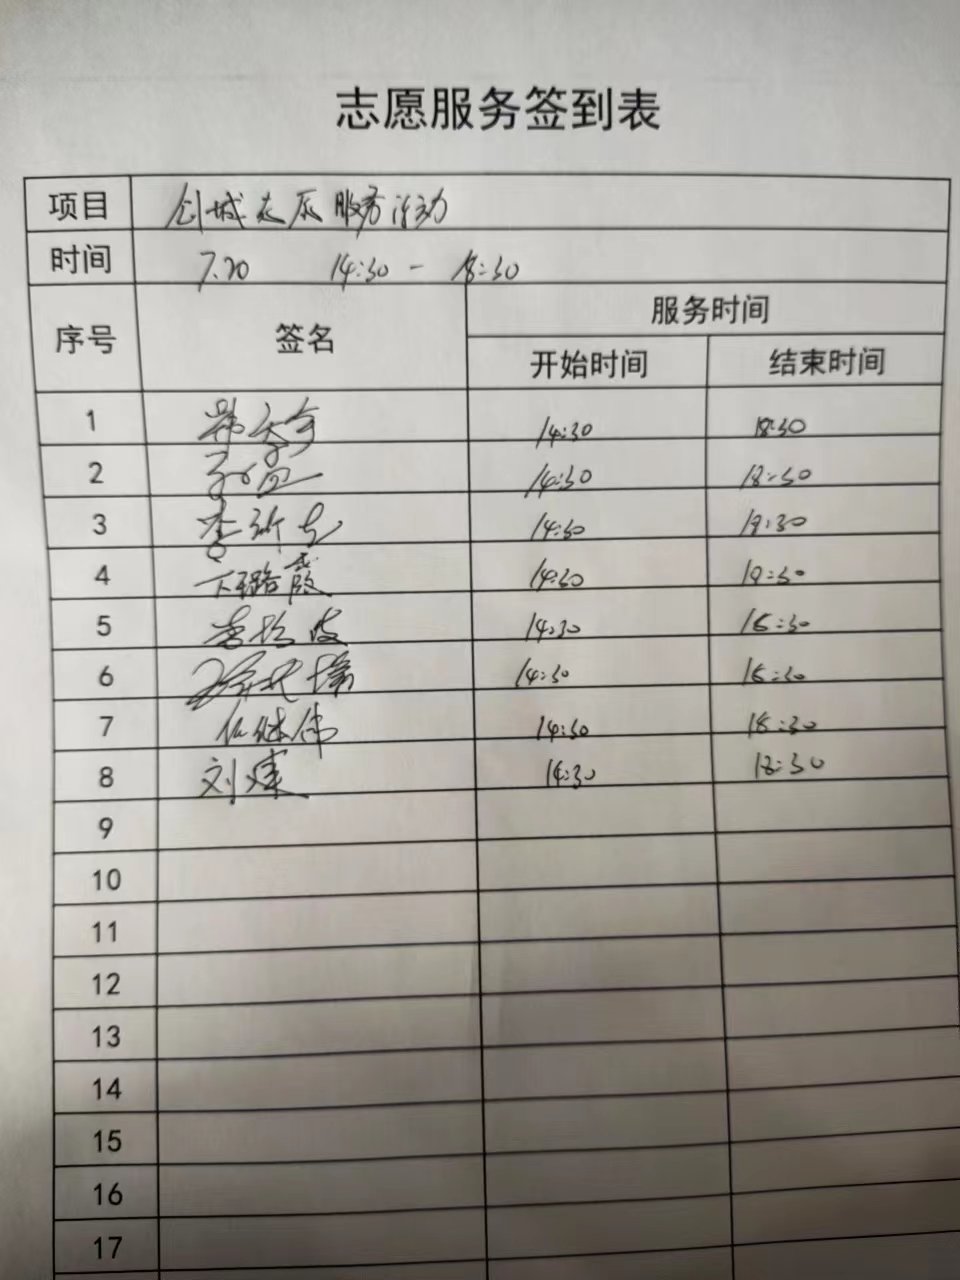 志愿服务签到表
项目 创城志愿服务活动
时间 7.20 14:30 - 18:30
序号 签名 服务时间
开始时间 结束时间
1 14:30 18:30
2 14:30 18:30
3 14:30 18:30
4 14:30 18:30
5 14:30 18:30
6 14:30 18:30
7 伍继伟 14:30 18:30
8 刘 14:30 18:30
9
10
11
12
13
14
15
16
17